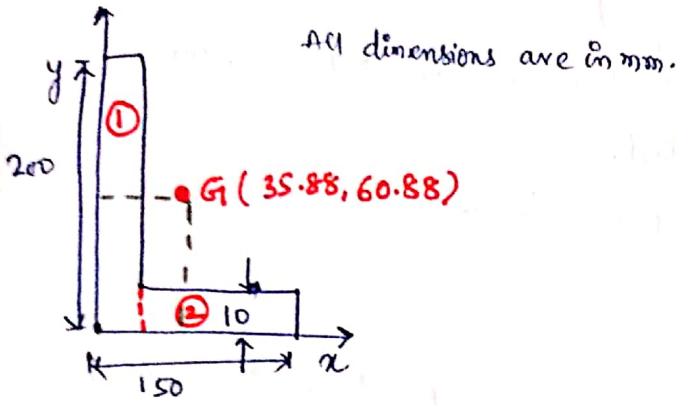 All dimensions are in mm.
y
①
200
G ( 35.88, 60.88)
② 10
x
150